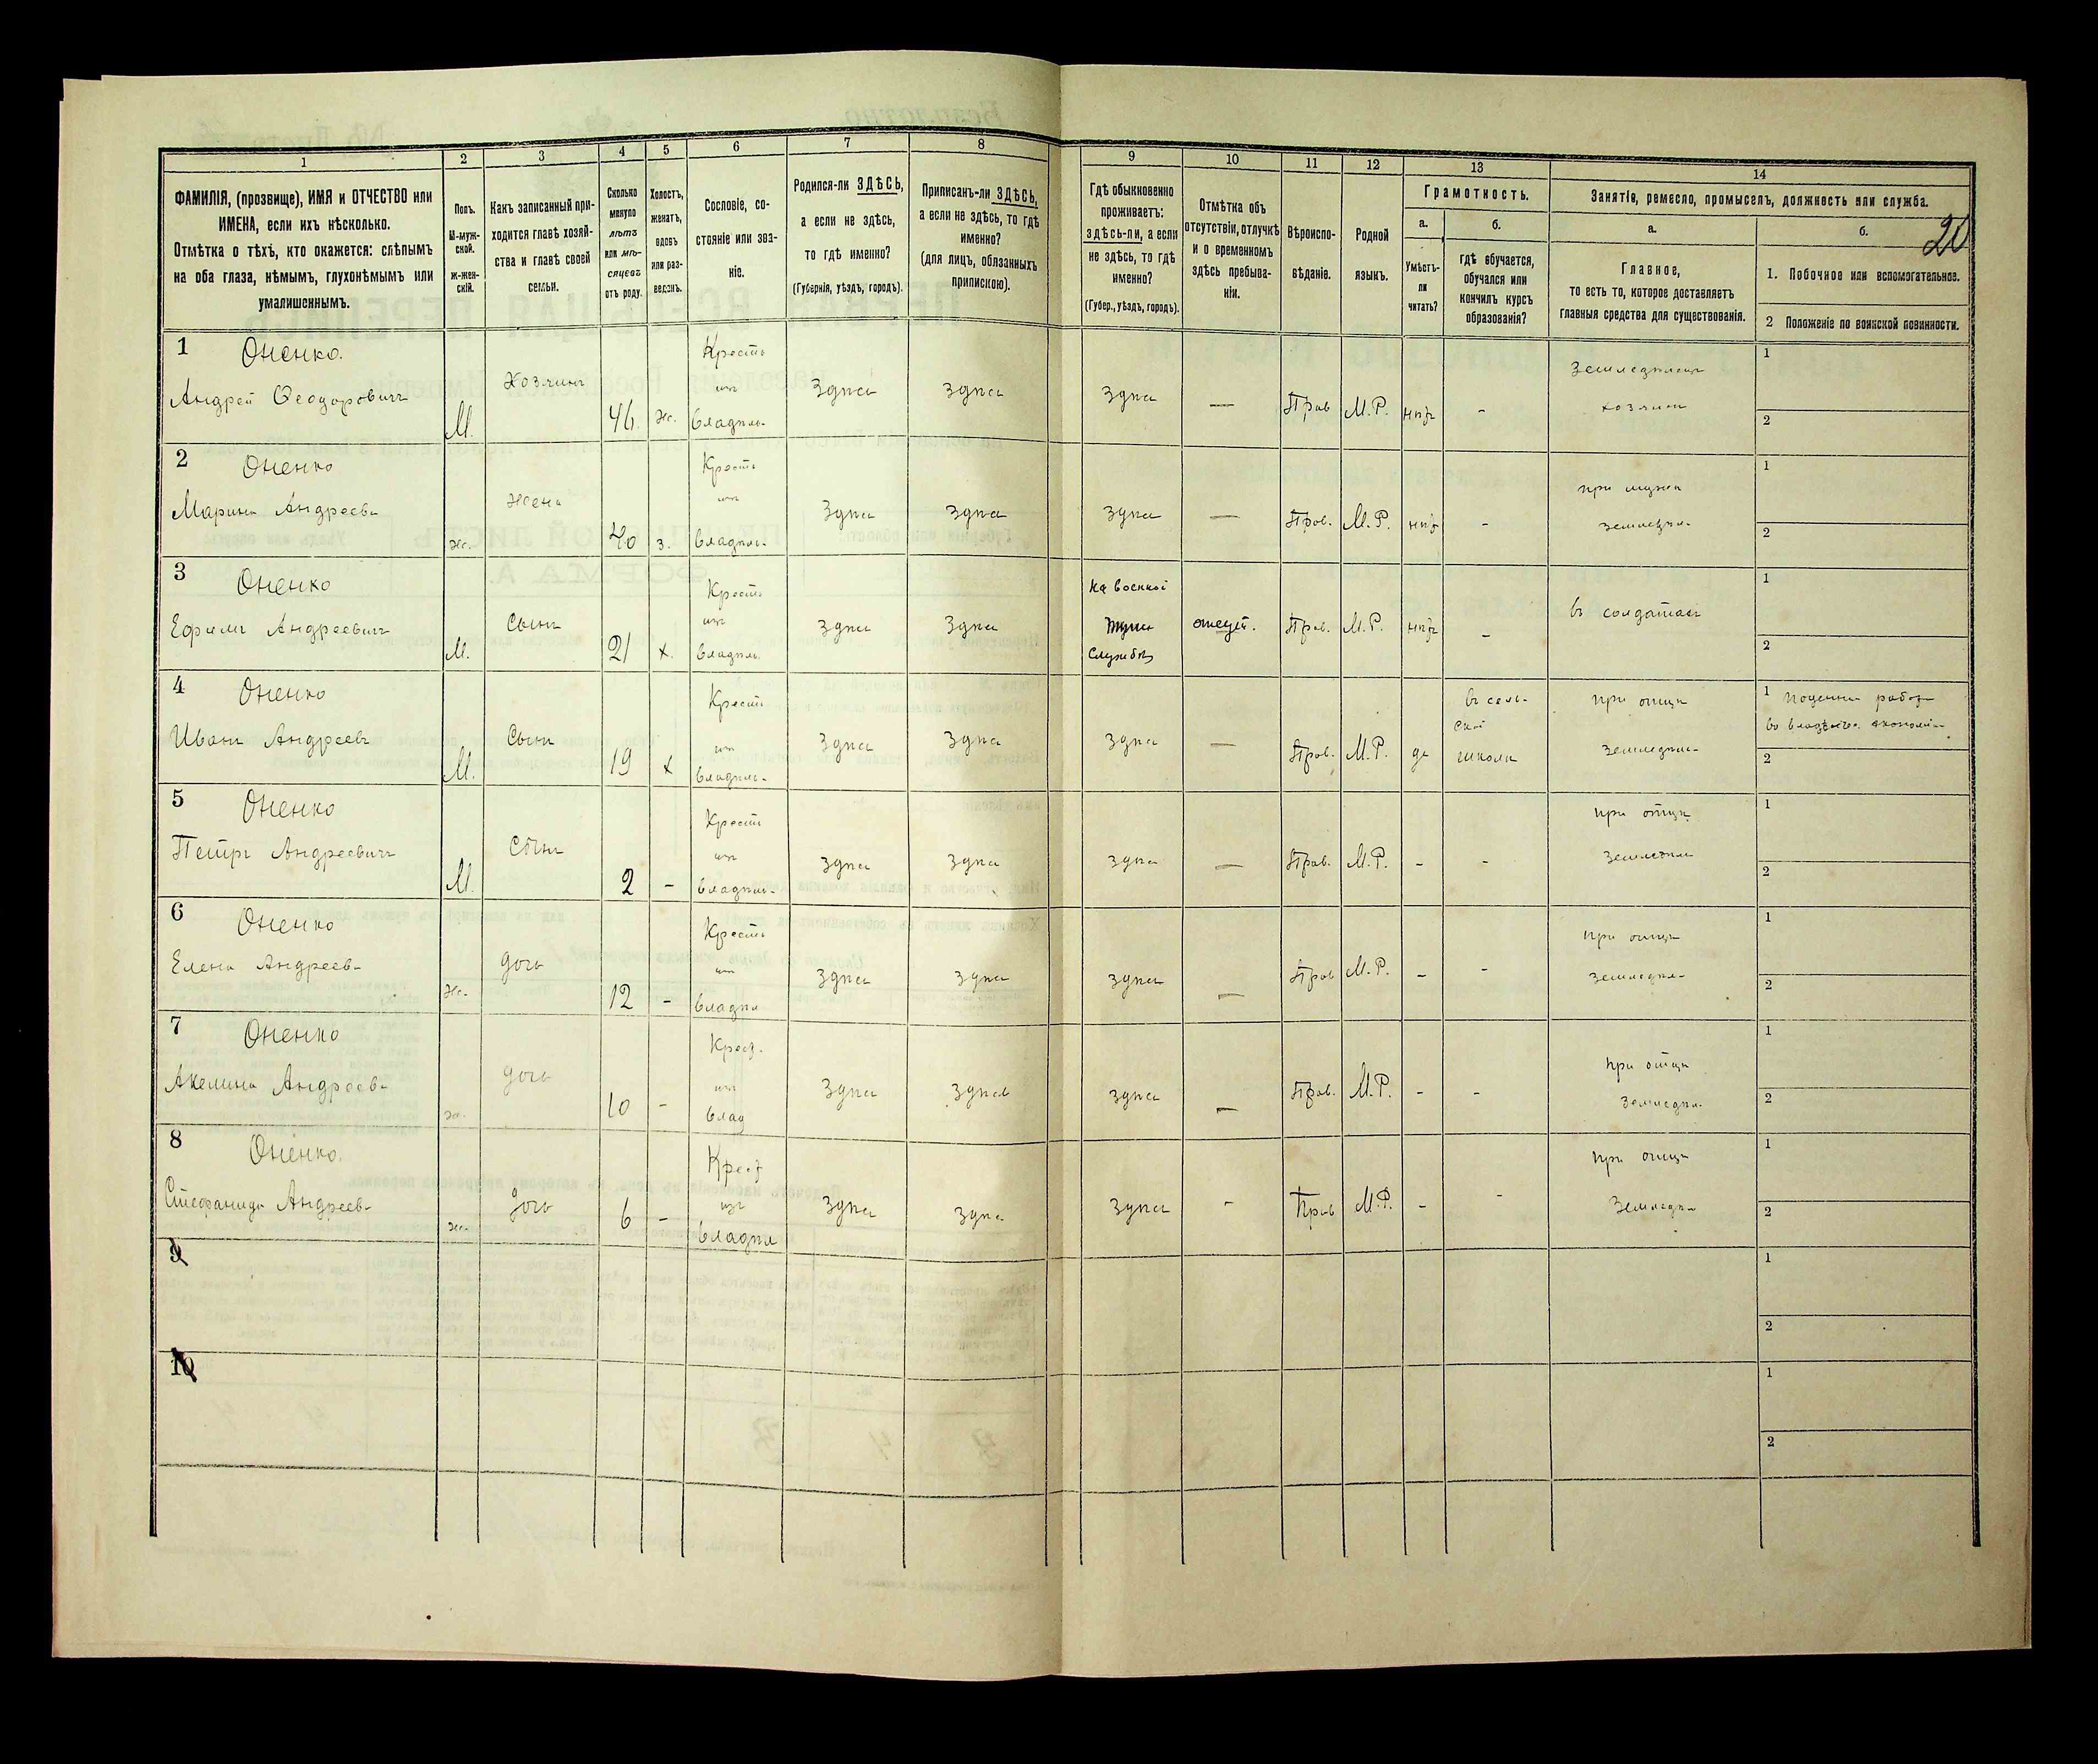 1 2 3 4 5 6 7 8 9 10 11 12 13 14
ФАМИЛІЯ, (прозвище), ИМЯ и ОТЧЕСТВО или
ИМЕНА, если ихъ нѣсколько.
Отмѣтка о тѣхъ, кто окажется: слѣпымъ
на оба глаза, нѣмымъ, глухонѣмымъ или
умалишеннымъ.
Полъ.
М-муж-
ской.
Ж-жен-
скій.
Какъ записанный при-
ходится главѣ хозяй-
ства и главѣ своей
семьи.
Сколько
минуло
лѣтъ
или мѣ-
сяцевъ
отъ роду.
Холостъ,
женатъ,
вдовъ
или раз-
веденъ.
Сословіе, со-
стояніе или зва-
ніе.
Родился-ли ЗДѢСЬ,
а если не здѣсь,
то гдѣ именно?
(Губернія, уѣздъ, городъ).
Приписанъ-ли ЗДѢСЬ,
а если не здѣсь, то гдѣ
именно?
(для лицъ, обязанныхъ
припискою).
Гдѣ обыкновенно
проживаетъ:
здѣсь-ли, а если
не здѣсь, то гдѣ
именно?
(Губер., уѣздъ, городъ).
Отмѣтка объ
отсутствіи, отлучкѣ
и о временномъ
здѣсь пребыва-
ніи.
Вѣроиспо-
вѣданіе.
Родной
языкъ.
Грамотность.
а.
Умѣетъ-
ли
читать?
б.
гдѣ обучается,
обучался или
кончилъ курсъ
образованія?
Занятія, ремесло, промыселъ, должность или служба.
а.
Главное,
то есть то, которое доставляетъ
главныя средства для существованія.
б.
20
1. Побочное или вспомогательное.
2 Положеніе по воинской повинности.
1 Оненко.
Андрей Ѳеодоровичъ
М.
Хозяинъ
46.
ж.
Крестъ
изъ
владѣль-
здѣсь
здѣсь
здѣсь
—
Прав
М.Р.
нѣтъ
-
Земледѣлецъ
хозяинъ
1
2
2 Оненко
Марина Андреев-
ж.
Жена
40
з.
Крестъ
изъ
владѣль-
здѣсь
здѣсь
здѣсь
—
Прав.
М.Р.
нѣтъ
-
при мужѣ
земледѣл-
1
2
3 Оненко
Ефимъ Андреевичъ
М.
Сынъ
21
х.
Крестъ
изъ
владѣль
здѣсь
здѣсь
На военной
службѣ
отсут.
Прав.
М.Р.
нѣтъ
-
въ солдатахъ
1
2
4 Оненко
Иванъ Андреевъ
М.
Сынъ
19
х
Крестъ
изъ
владѣль-
здѣсь
здѣсь
здѣсь
—
Прав.
М.Р.
да
въ сель-
ской
школѣ
при отцѣ
земледѣл-
1
2
5 Оненко
Петръ Андреевичъ
М.
Сынъ
2
-
Крестъ
изъ
владѣль-
здѣсь
здѣсь
здѣсь
—
Прав.
М.Р.
-
-
при отцѣ
земледѣл
1
2
6 Оненко
Елена Андреев-
ж.
дочь
12
-
Крестъ
изъ
владѣл
здѣсь
здѣсь
здѣсь
—
Прав
М.Р.
-
-
при отцѣ
земледѣл-
1
2
7 Оненко
Акелина Андреев-
ж.
дочь
10
-
Крест.
изъ
влад
здѣсь
здѣсь
здѣсь
—
Прав.
М.Р.
-
-
при отцѣ
земледѣл-
1
2
8 Оненко.
Стефанида Андреев-
ж.
дочь
6
-
Крест
изъ
владѣл
здѣсь
здѣсь
здѣсь
-
Прав
М.Р.
-
-
при отцѣ
земледѣл
1
2
9
1
2
10
1
2